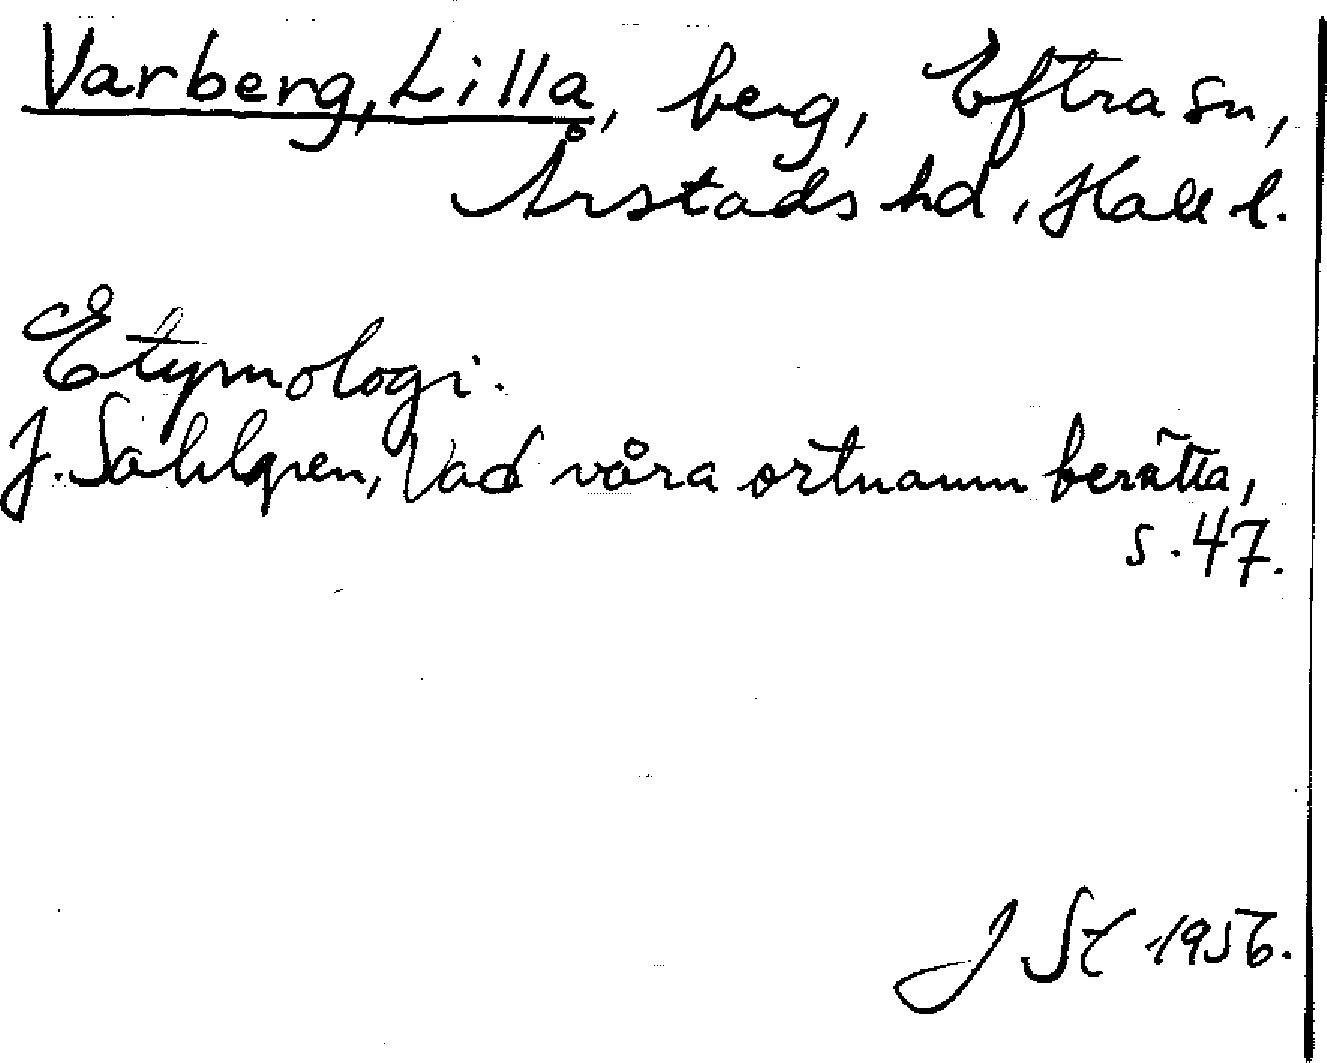 Varberg, Lilla, berg, Eftra sn,
Årstads hd, Hall l.
Etymologi.
J. Sahlgren, Vad våra ortnamn berätta,
s. 47.
J St 1956.